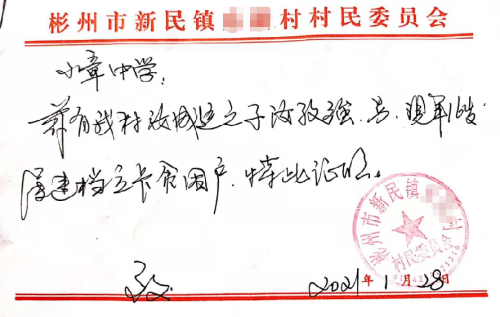 彬州市新民镇 村村民委员会
小章中学:
兹有我村汝成选之子汝孜强,男,现年 岁
属建档立卡贫困户,特此证明。
2021年1月28日
彬州市新民镇
村民委员会